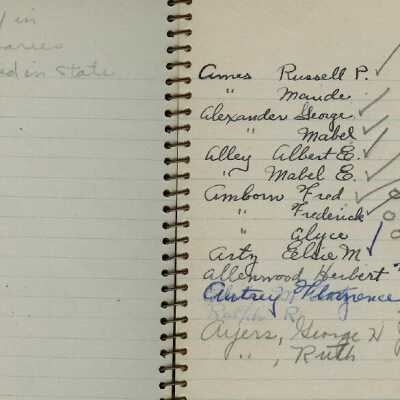 in
ed in State
Ames Russell P. ✓
" Maude
Alexander George ✓
" Mabel ✓
Alley Albert E. ✓
" Mabel E. ✓
Amborn Fred ✓
" Frederick ✓
" Alyce
Artz Elsie M ✓
Allenwood Herbert
Autrey Florence
Ralph R
Ayers, George W
" , Ruth